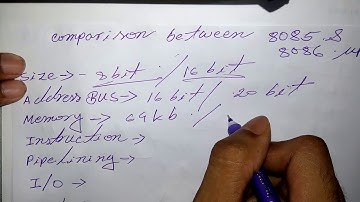 comparison between 8085 &
8086 .up
Size :- 8bit / 16 bit
Address BUS :- 16 bit / 20 bit
Memory → 64kb /
Instruction →
Pipelining →
I/O →